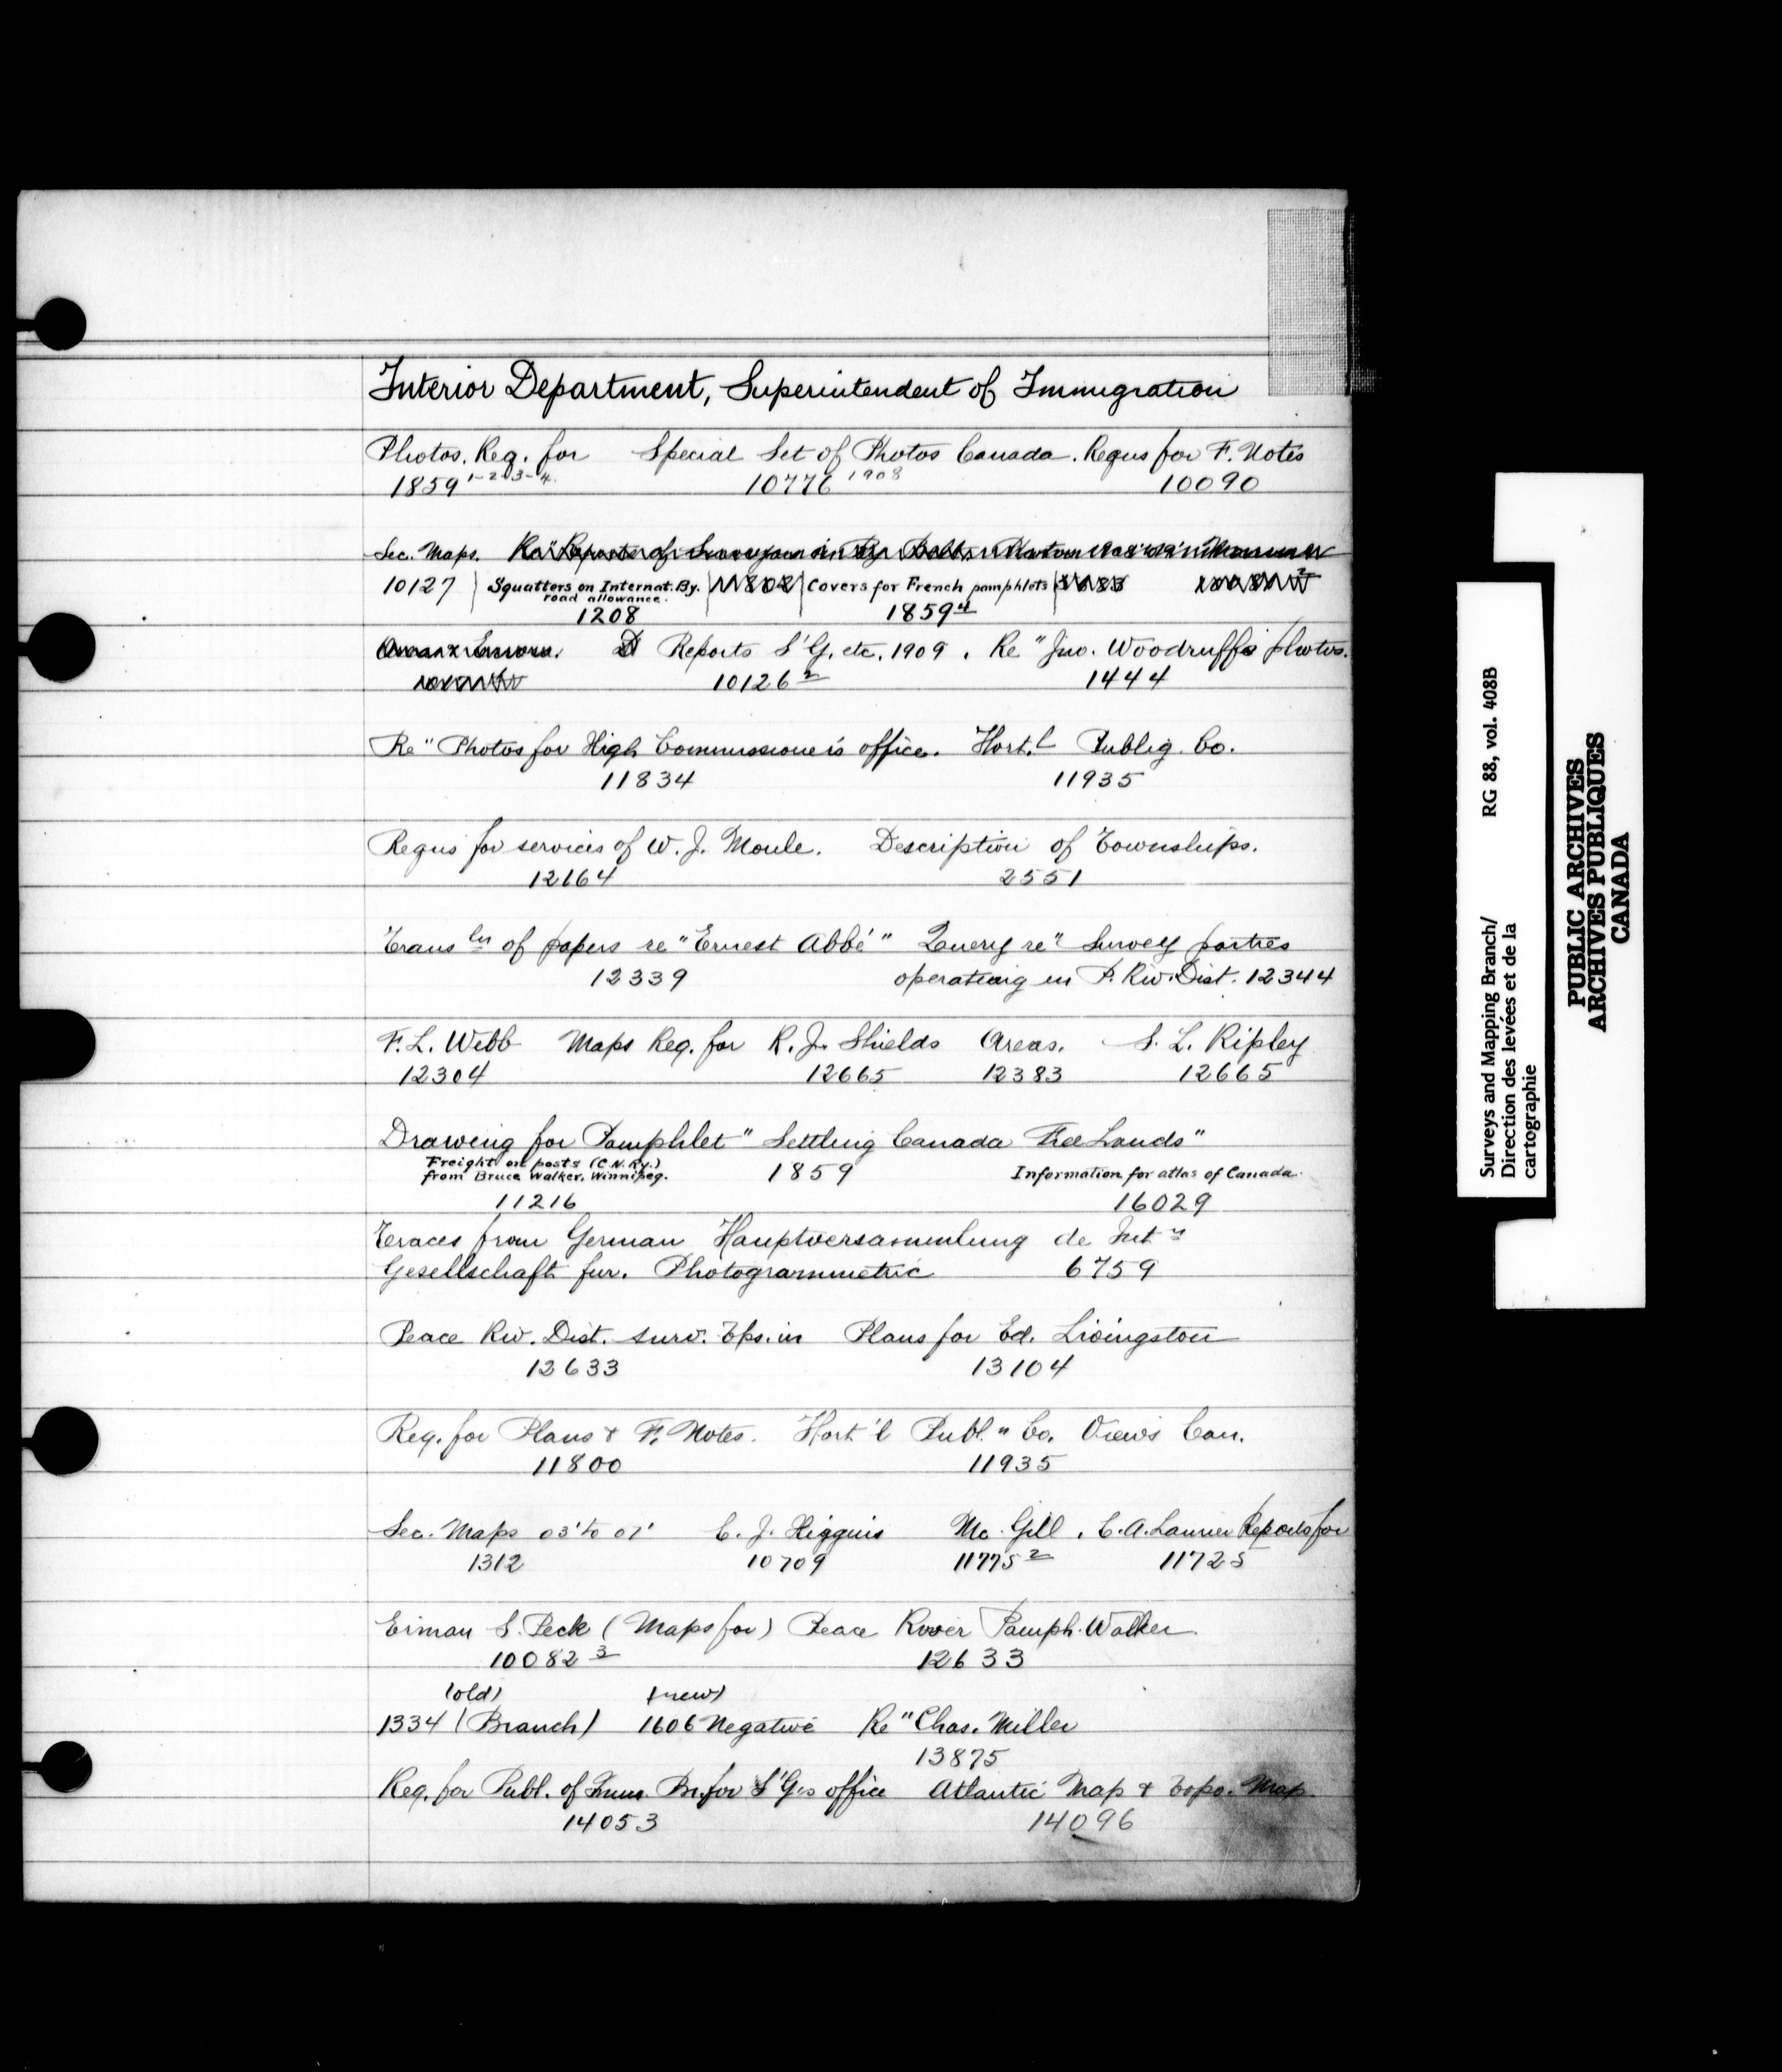 Interior Department, Superintendent of Immigration
Photos. Req. for Special Set of Photos Canada. Requs for F. Notes
1859 1-2-3-4. 10776 1908 10090
Sec. Maps.
10127 Squatters on Internat. By. Covers for French pamphlets
road allowance.
1208 1859 4
Reports S'G. etc. 1909. Re" Jno. Woodruff's photos.
10126 2 1444
Re" Photos for High Commissioner's office. Hort.l Publig. Co.
11834 11935
Requs for services of W. J. Moule. Description of Townships.
12164 2551
Trans ln of papers re "Ernest Abbé" Query re" Survey parties
12339 operating in P. Riv. Dist. 12344
F. L. Webb Maps Req. for R. J. Shields Areas. S. L. Ripley
12304 12665 12383 12665
Drawing for Pamphlet "Settling Canada Free Lands"
Freight on posts (C.N.Ry.)
from Bruce Walker, Winnipeg. 1859 Information for atlas of Canada.
11216 16029
from German Hauptversammlung de Int n
Gesellschaft fur. Photogrammetric 6759
Peace Riv. Dist. surv. Tps. in Plans for Ed. Livingston
12633 13104
Req. for Plans & F. Notes. Hort'l Publ.n Co. Views Can.
11800 11935
Sec. Maps 03' to 07' C. J. Higgins Mc. Gill. C. A. Laurier Reports for
1312 10709 11775 2 11725
S. Peck (Maps for) Peace River Pamph. Walker
10082 3 12633
(old) (new)
1334 (Branch) 1606 Negative Re" Chas. Miller
13875
Req. for Publ. of Imm. Br. for S'G's office Atlantic Map & Topo. Map.
14053 14096
Surveys and Mapping Branch/ RG 88, vol. 408B
Direction des levées et de la
cartographie
PUBLIC ARCHIVES
ARCHIVES PUBLIQUES
CANADA